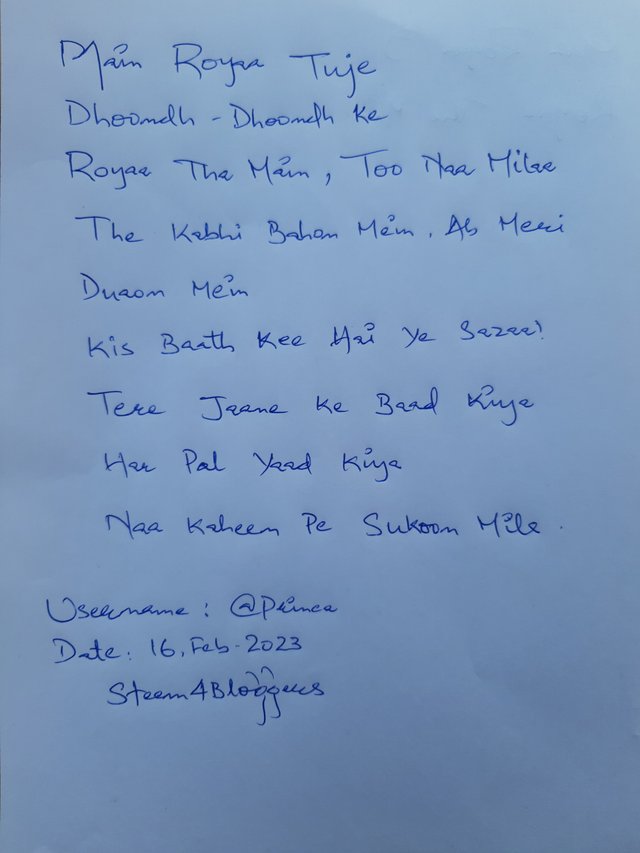 Main Royaa Tuje
Dhoondh - Dhoondh Ke
Royaa Tha Main, Too Naa Milaa
The Kabhi Bahon Mein. Ab Meri
Duaon Mein
Kis Baath Kee Hai Ye Sazaa!
Tere Jaane Ke Baad Kiya
Har Pal Yaad Kiya
Naa Kaheen Pe Sukoon Mile.
Username : @Prinea
Date: 16. Feb. 2023
Steem4Bloggers